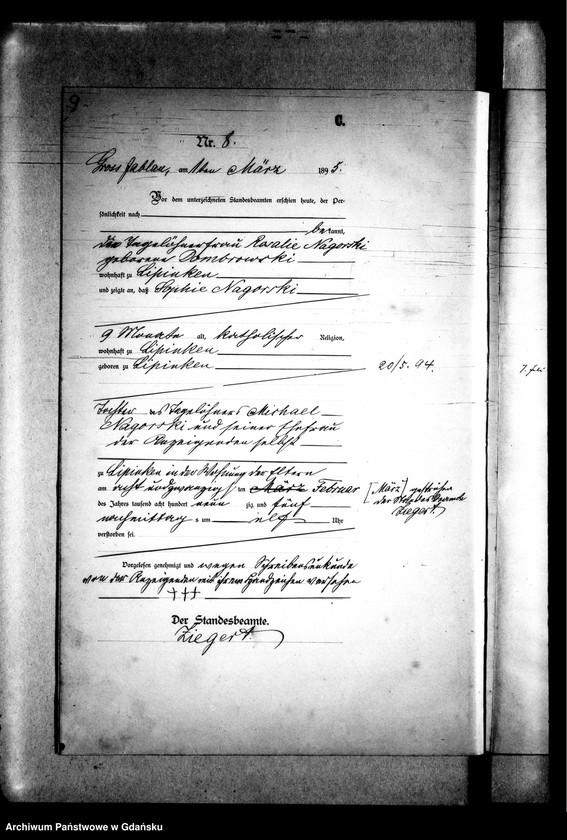 9
C.
Nr. 8.
Gross Jablau, am 1ten März 1895.
Vor dem unterzeichneten Standesbeamten erschien heute, der Per-
sönlichkeit nach
bekannt,
die Tagelöhnerfrau Rosalie Nagorski
geborene Dombrowski
wohnhaft zu Lipinken
und zeigte an, daß Sophie Nagorski
9 Monate alt, katholischer Religion,
wohnhaft zu Lipinken
geboren zu Lipinken
20/5. 94.
Tochter des Tagelöhners Michael
Nagorski und seiner Ehefrau
der Anzeigenden selbst
zu Lipinken in der Wohnung der Eltern
am acht und zwanzigsten März Februar
[März] gestrichen
der Standesbeamte
Ziegert
des Jahres tausend acht hundert neun zig und fünf
nachmittags um elf Uhr
verstorben sei.
Vorgelesen genehmigt und wegen Schreibensunkunde
von der Anzeigenden mit ihrem Handzeichen versehen
†††
Der Standesbeamte.
Ziegert.
Archiwum Państwowe w Gdańsku